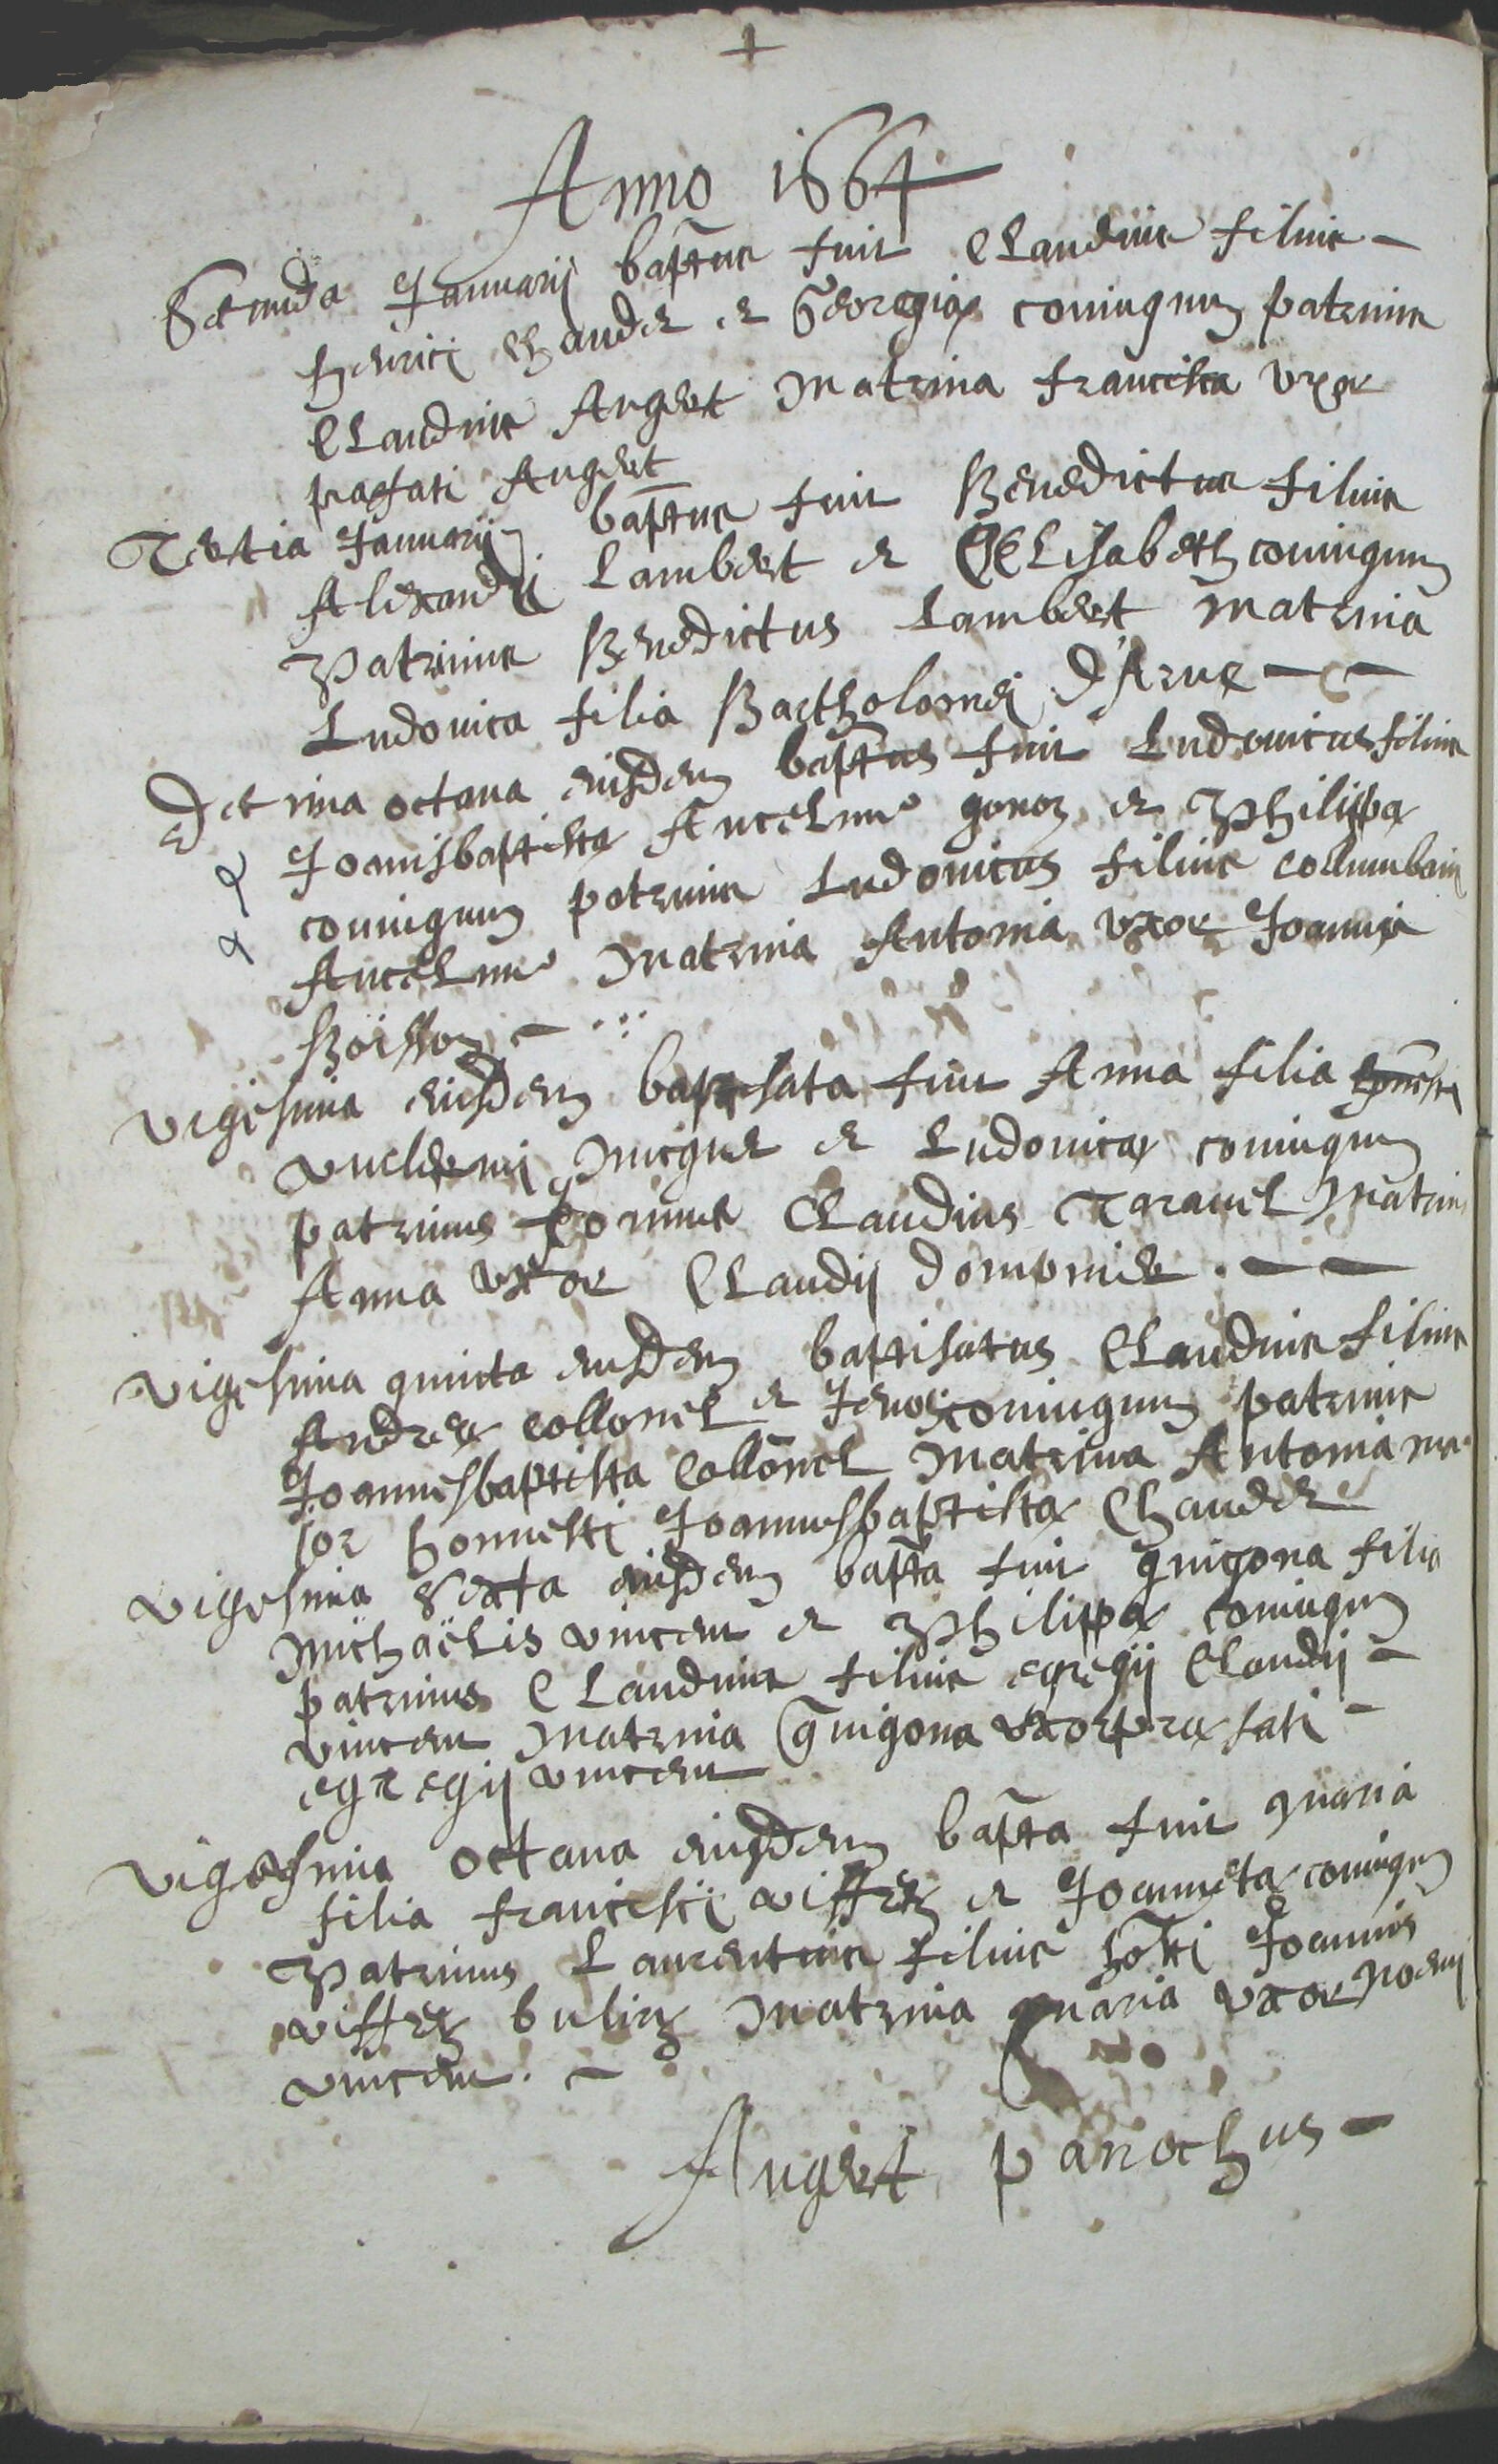 +
Anno 1664
Secunda Januarij bapt̃us fuit Claudius filius —
henrici Chaudet et Georgiæ coniugum patrinus
Claudius Augert Matrina francisca vxor
præfati Augert
Tertia Januarij bapt̃us fuit Benedictus filius
Alexandri Lambert et Elisabeth coniugum
Patrinus Benedictus Lambert Matrina
Ludouica filia Bartholomei D'Arue — —
Decima octaua eiusdem bapt̃us fuit Ludouicus filius
Joannisbaptistæ Ancelme gonoz et Philippæ
coniugum patrinus Ludouicus filius collumbani
Ancelme Matrina Antonia vxor Joannis
Boisson —
vigesima eiusdem baptisata fuit Anna filia
vuclermi et Ludouicæ coniugum
patrinus Claudius Tarauel Matrina
Anna vxor Claudij . — —
vigesima quinta eiusdem baptisatus Claudius filius
Andreæ Collonel et coniugum patrinus
Joannesbaptista Collonel Matrina Antonia vx
sor honnesti Joannisbaptistæ Chaudet
vigesima sexta eiusdem bapt̃a fuit guigona filia
Michaëlis vincent et Philippæ coniugum
patrinus Claudius filius egregij Claudij —
vincent Matrina guigona vxor præfati —
egregij vincent
vigesima octaua eiusdem bapt̃a fuit Maria
filia francisci viffrez et Joannetæ coniugum
Patrinus Laurentius filius hosti Joannis
viffrez bulioz Matrina Maria vxor Noeuij
vincent. —
Augert parochus —